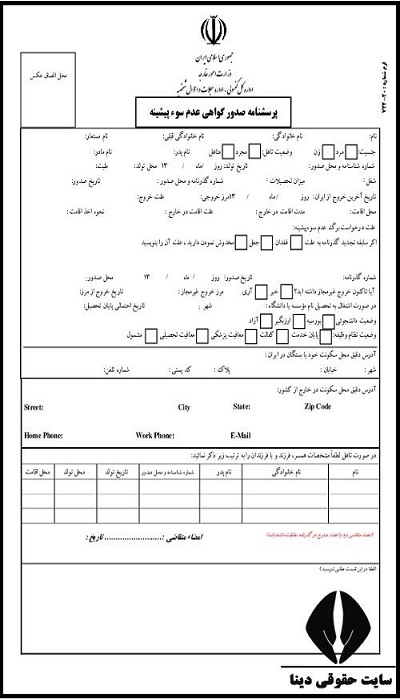 جمهوری اسلامی ایران
وزارت امور خارجه
اداره کل کنسولی، اداره سجلات و احوال شخصیه
فرم شماره: ۲۰-۷۲۲
محل الصاق عکس
پرسشنامه صدور گواهی عدم سوء پیشینه
نام: نام خانوادگی: نام خانوادگی قبلی: نام مستعار:
جنسیت: مرد زن وضعیت تاهل: مجرد متاهل نام پدر: نام مادر:
شماره شناسنامه و محل صدور: تاریخ تولد: روز /ماه / ۱۳ محل تولد: ملیت:
شغل: میزان تحصیلات: شماره گذرنامه و محل صدور: تاریخ صدور:
تاریخ آخرین خروج از ایران: روز /ماه / ۱۳ مرز خروجی: علت خروج:
محل اقامت: مدت اقامت در خارج: علت اقامت در خارج: نحوه اخذ اقامت:
علت درخواست برگ عدم سوءپیشینه:
اگر سابقه تجدید گذرنامه به علت: فقدان جعل مخدوش نمودن دارید، علت آن را بنویسید
شماره گذرنامه: تاریخ صدور: روز /ماه / ۱۳ محل صدور:
آیا تاکنون خروج غیرمجاز داشته اید؟ خیر آری مرز خروج غیرمجاز: تاریخ خروج از مرز:
در صورت اشتغال به تحصیل نام مؤسسه یا دانشگاه: شهر: تاریخ احتمالی پایان تحصیل:
وضعیت دانشجوئی: بورسیه ارزبگیر آزاد
وضعیت نظام وظیفه: پایان خدمت کفالت معافیت پزشکی معافیت تحصیلی مشمول
آدرس دقیق محل سکونت خود یا بستگان در ایران:
شهر: خیابان: پلاک: کد پستی: شماره تلفن:
آدرس دقیق محل سکونت در خارج از کشور:
Street: City State: Zip Code
Home Phone: Work Phone: E-Mail
در صورت تاهل لطفاً مشخصات همسر، فرزند و یا فرزندان را به ترتیب زیر ذکر نمائید:
نام نام خانوادگی نام پدر شماره شناسنامه و محل صدور تاریخ تولد محل تولد محل اقامت
(امضاء متقاضی باید با امضاء مندرج در گذرنامه مطابقت داشته باشد)
امضاء متقاضی: ........................ تاریخ:
(لطفا در این قسمت مطلبی ننویسید)
سایت حقوقی دینا